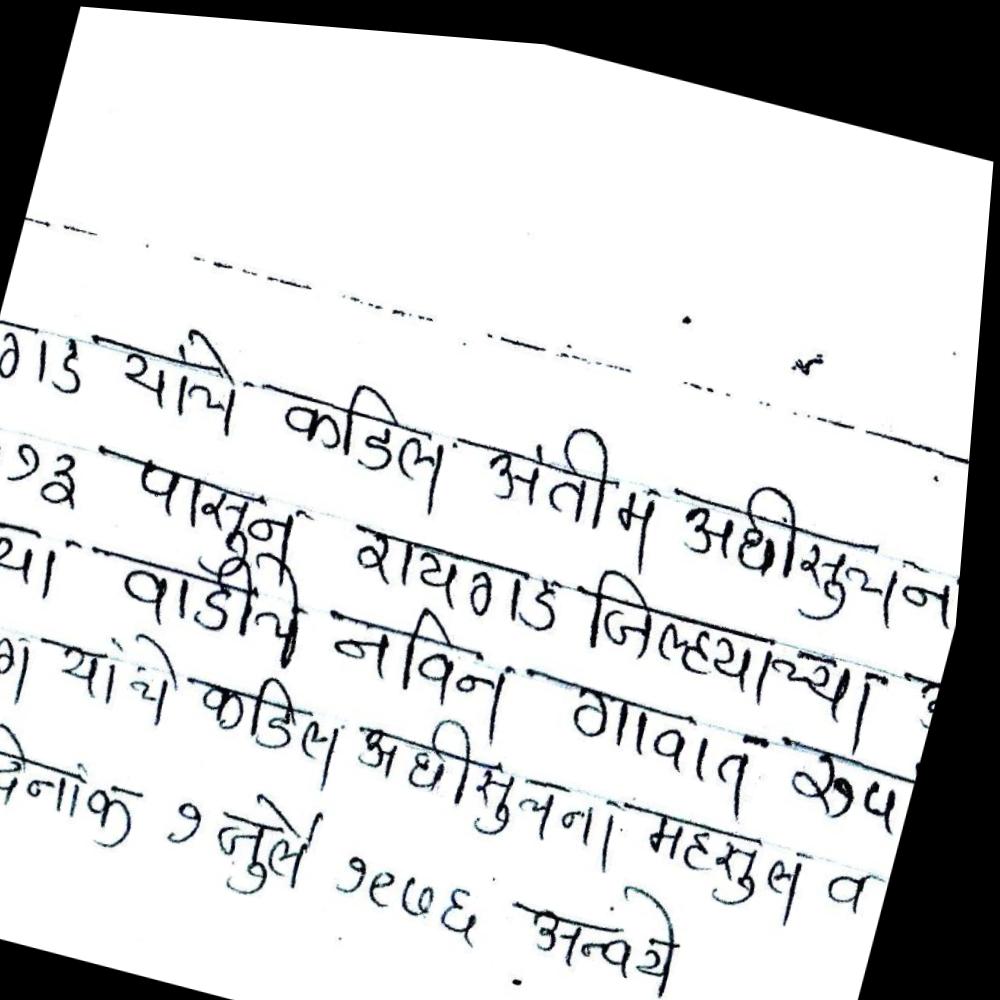 गड यांचे कडिल अंतीम अधीसुचन
१३ पासुन रायगड जिल्हयाच्या
या वाडीचे नविन गावात रुप
ग यांचे कडिल अधीसुचना महसुल व
दिनांक १ जुलै १९७६ अन्वये